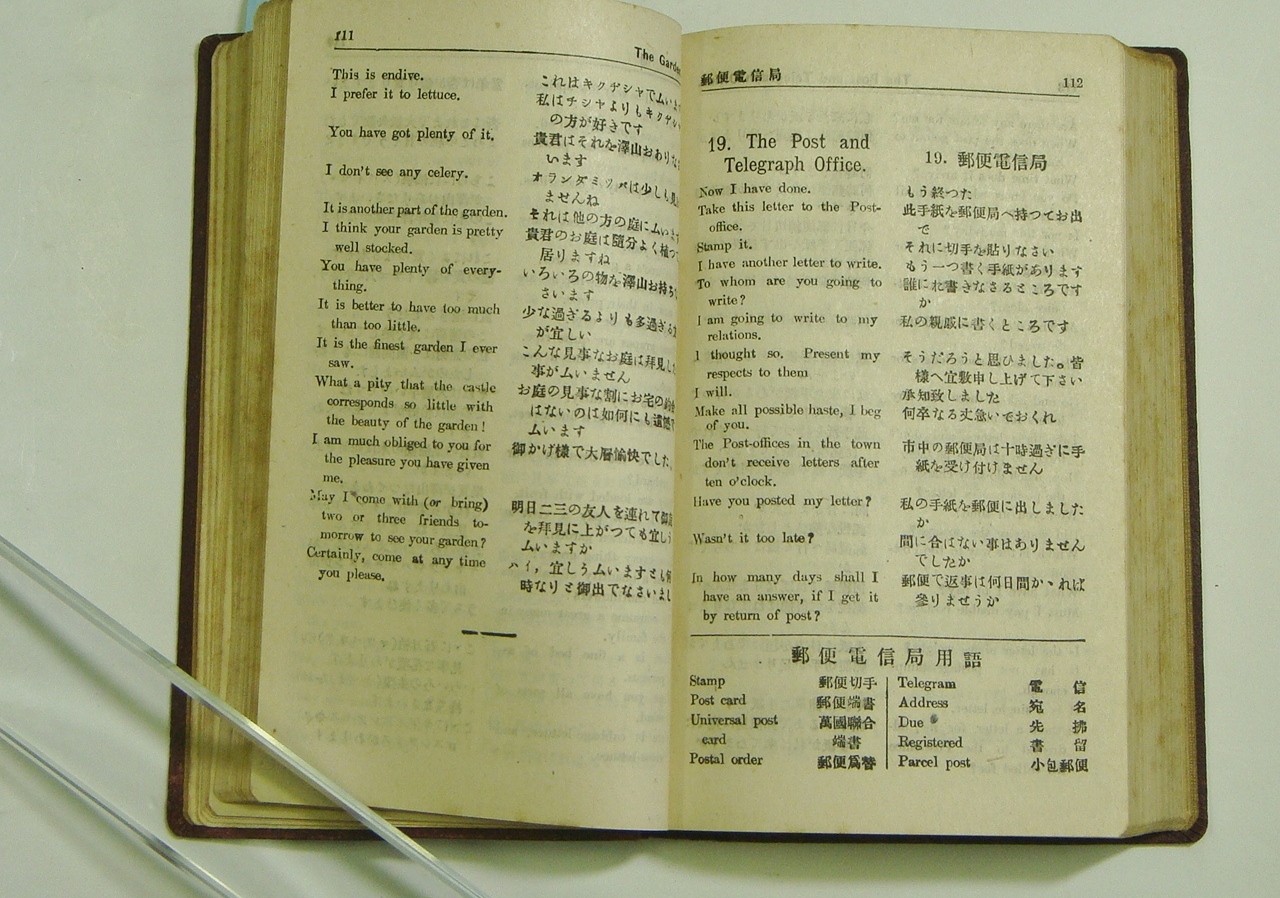 111
The Garden
This is endive.
I prefer it to lettuce.
You have got plenty of it.
I don't see any celery.
It is another part of the garden.
I think your garden is pretty
well stocked.
You have plenty of every-
thing.
It is better to have too much
than too little.
It is the finest garden I ever
saw.
What a pity that the castle
corresponds so little with
the beauty of the garden!
I am much obliged to you for
the pleasure you have given
me.
May I come with (or bring)
two or three friends to-
morrow to see your garden?
Certainly, come at any time
you please.
これはキクヂシヤでムいま
私はチシヤよりもキクヂシ
の方が好きです
貴君はそれを澤山おありな
います
オランダミツバは少しも見
ませんね
それは他の方の庭にムいま
貴君のお庭は隨分よく植つ
居りますね
いろいろの物を澤山お持ち
さいます
少な過ぎるよりも多過ぎる
が宜しい
こんな見事なお庭は拜見し
事がムいません
お庭の見事な割にお宅の
はないのは如何にも遺憾
ムいます
御かげ樣で大層愉快でした
明日二三の友人を連れて御
を拜見に上がつても宜し
ムいますか
ハイ, 宜しうムいますとも
時なりと御出でなさいまし
郵便電信局
112
19. The Post and
Telegraph Office.
Now I have done.
Take this letter to the Post-
office.
Stamp it.
I have another letter to write.
To whom are you going to
write?
I am going to write to my
relations.
I thought so. Present my
respects to them
I will.
Make all possible haste, I beg
of you.
The Post-offices in the town
don't receive letters after
ten o'clock.
Have you posted my letter?
Wasn't it too late?
In how many days shall I
have an answer, if I get it
by return of post?
19. 郵便電信局
もう終つた
此手紙を郵便局へ持つてお出
で
それに切手を貼りなさい
もう一つ書く手紙があります
誰にお書きなさるところです
か
私の親戚に書くところです
そうだろうと思ひました。皆
樣へ宜敷申し上げて下さい
承知致しました
何卒なる丈急いでおくれ
市中の郵便局は十時過ぎに手
紙を受け付けません
私の手紙を郵便に出しました
か
間に合はない事はありません
でしたか
郵便で返事は何日間かゝれば
參りませうか
郵便電信局用語
Stamp 郵便切手
Post card 郵便端書
Universal post 萬國聯合
card 端書
Postal order 郵便爲替
Telegram 電信
Address 宛名
Due 先拂
Registered 書留
Parcel post 小包郵便